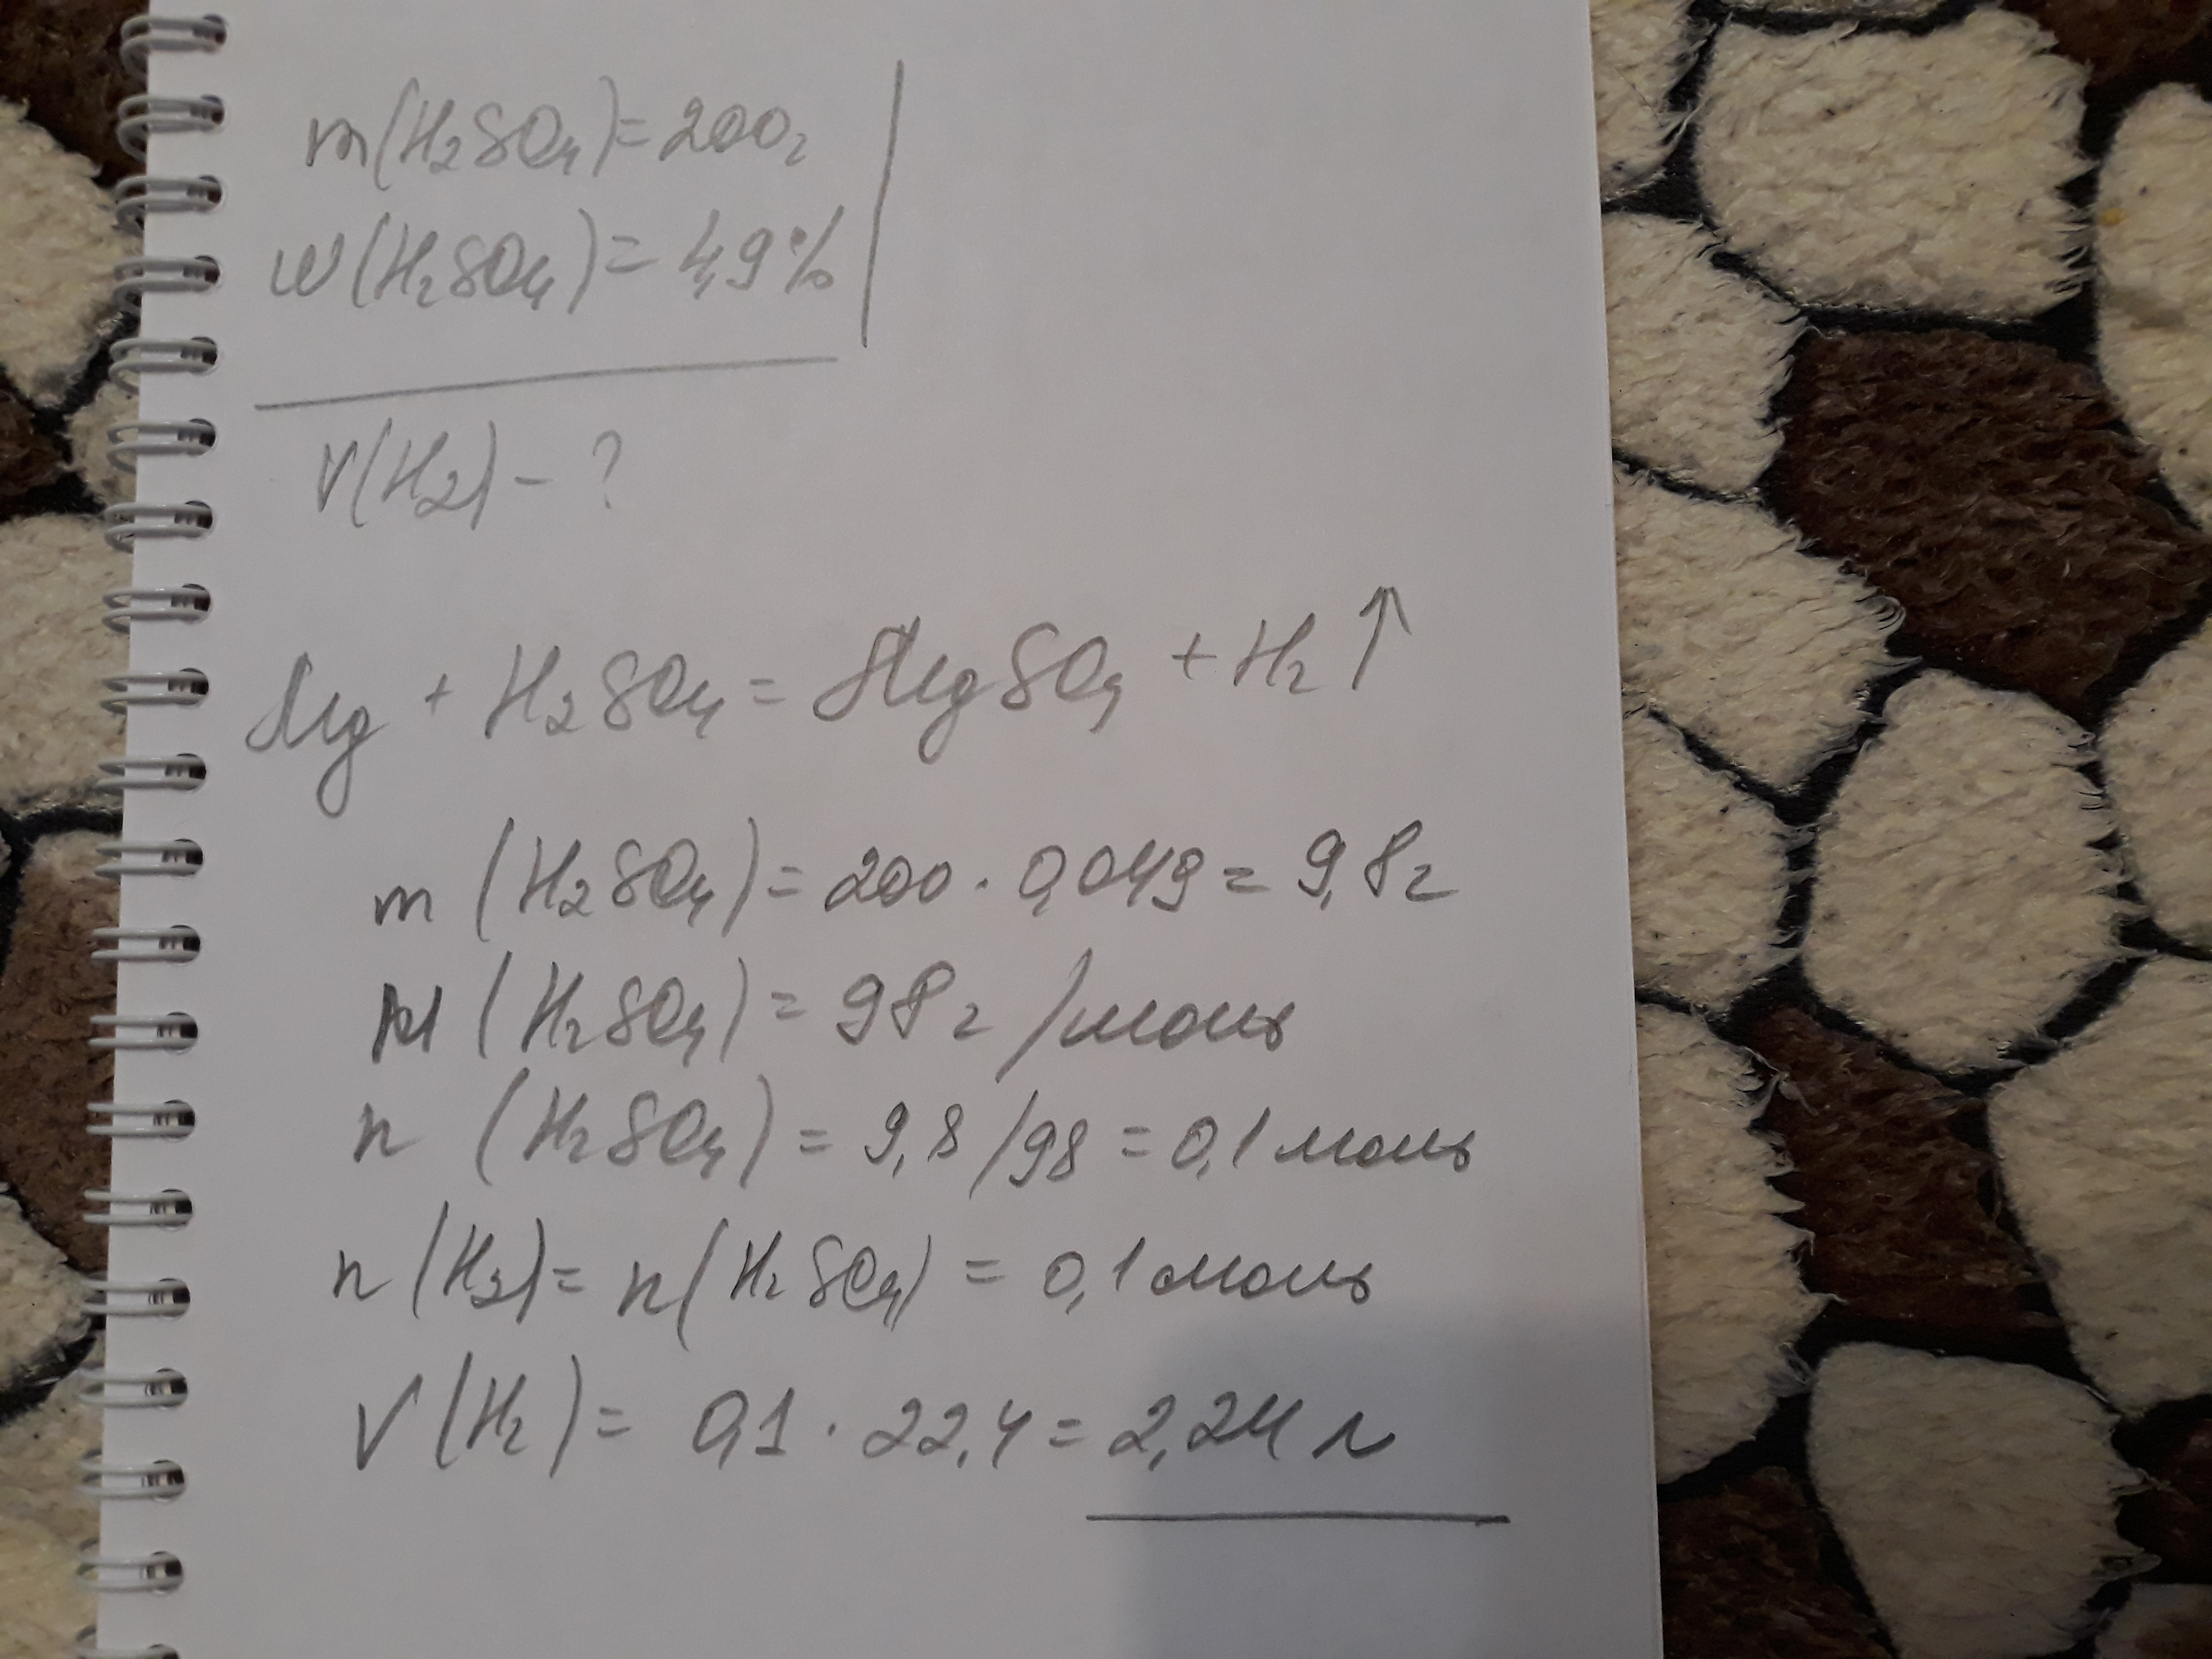 m(H2SO4)=200г
w(H2SO4)=4,9%
V(H2)-?
Mg + H2SO4 = MgSO4 + H2↑
m (H2SO4) = 200 · 0,049 = 9,8г
M (H2SO4) = 98г/моль
n (H2SO4) = 9,8/98 = 0,1моль
n(H2)= n(H2SO4) = 0,1моль
V(H2)= 0,1 · 22,4 = 2,24 л